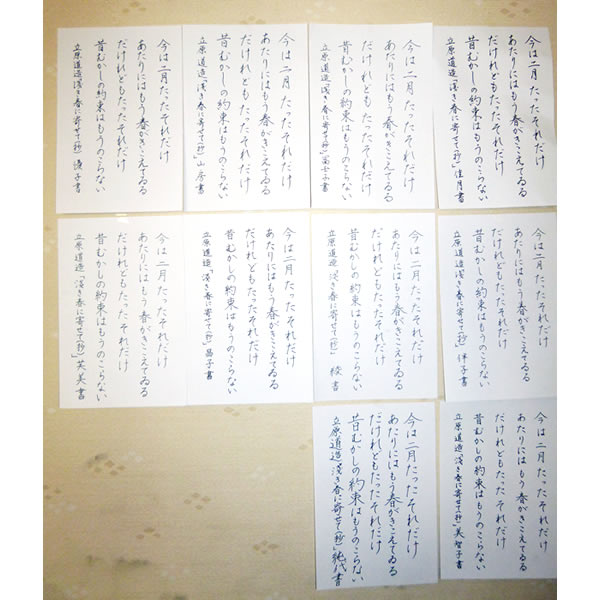 今は二月 たったそれだけ
あたりにはもう春がきこえてゐる
だけれどもたったそれだけ
昔むかしの約束はもうのこらない
立原道造「浅き春に寄せて(抄)」佳月書
今は二月 たったそれだけ
あたりにはもう春がきこえてゐる
だけれども たったそれだけ
昔むかしの約束はもうのこらない
立原道造「浅き春に寄せて(抄)」
今は二月 たったそれだけ
あたりにはもう春がきこえてゐる
だけれども たったそれだけ
昔むかしの約束はもうのこらない
立原道造「浅き春に寄せて(抄)」
今は二月 たったそれだけ
あたりにはもう春がきこえてゐる
だけれどもたったそれだけ
昔むかしの約束はもうのこらない
立原道造「浅き春に寄せて(抄)」
今は二月 たったそれだけ
あたりにはもう春がきこえてゐる
だけれどもたったそれだけ
昔むかしの約束はもうのこらない
立原道造「浅き春に寄せて(抄)」
今は二月 たったそれだけ
あたりにはもう春がきこえてゐる
だけれどもたったそれだけ
昔むかしの約束はもうのこらない
立原道造「浅き春に寄せて(抄)」綾書
今は二月 たったそれだけ
あたりにはもう春がきこえてゐる
だけれどもたったそれだけ
昔むかしの約束はもうのこらない
立原道造「浅き春に寄せて(抄)」昌子書
今は二月 たったそれだけ
あたりにはもう春がきこえてゐる
だけれどもたった それだけ
昔むかしの約束はもうのこらない
立原道造「浅き春に寄せて(抄)」芙美書
今は二月 たったそれだけ
あたりにはもう 春がきこえてゐる
だけれども たった それだけ
昔むかしの約束はもうのこらない
立原道造「浅き春に寄せて(抄)」美智子書
今は二月 たったそれだけ
あたりにはもう春がきこえてゐる
だけれどもたったそれだけ
昔むかしの約束はもうのこらない
立原道造「浅き春に寄せて(抄)」純代書